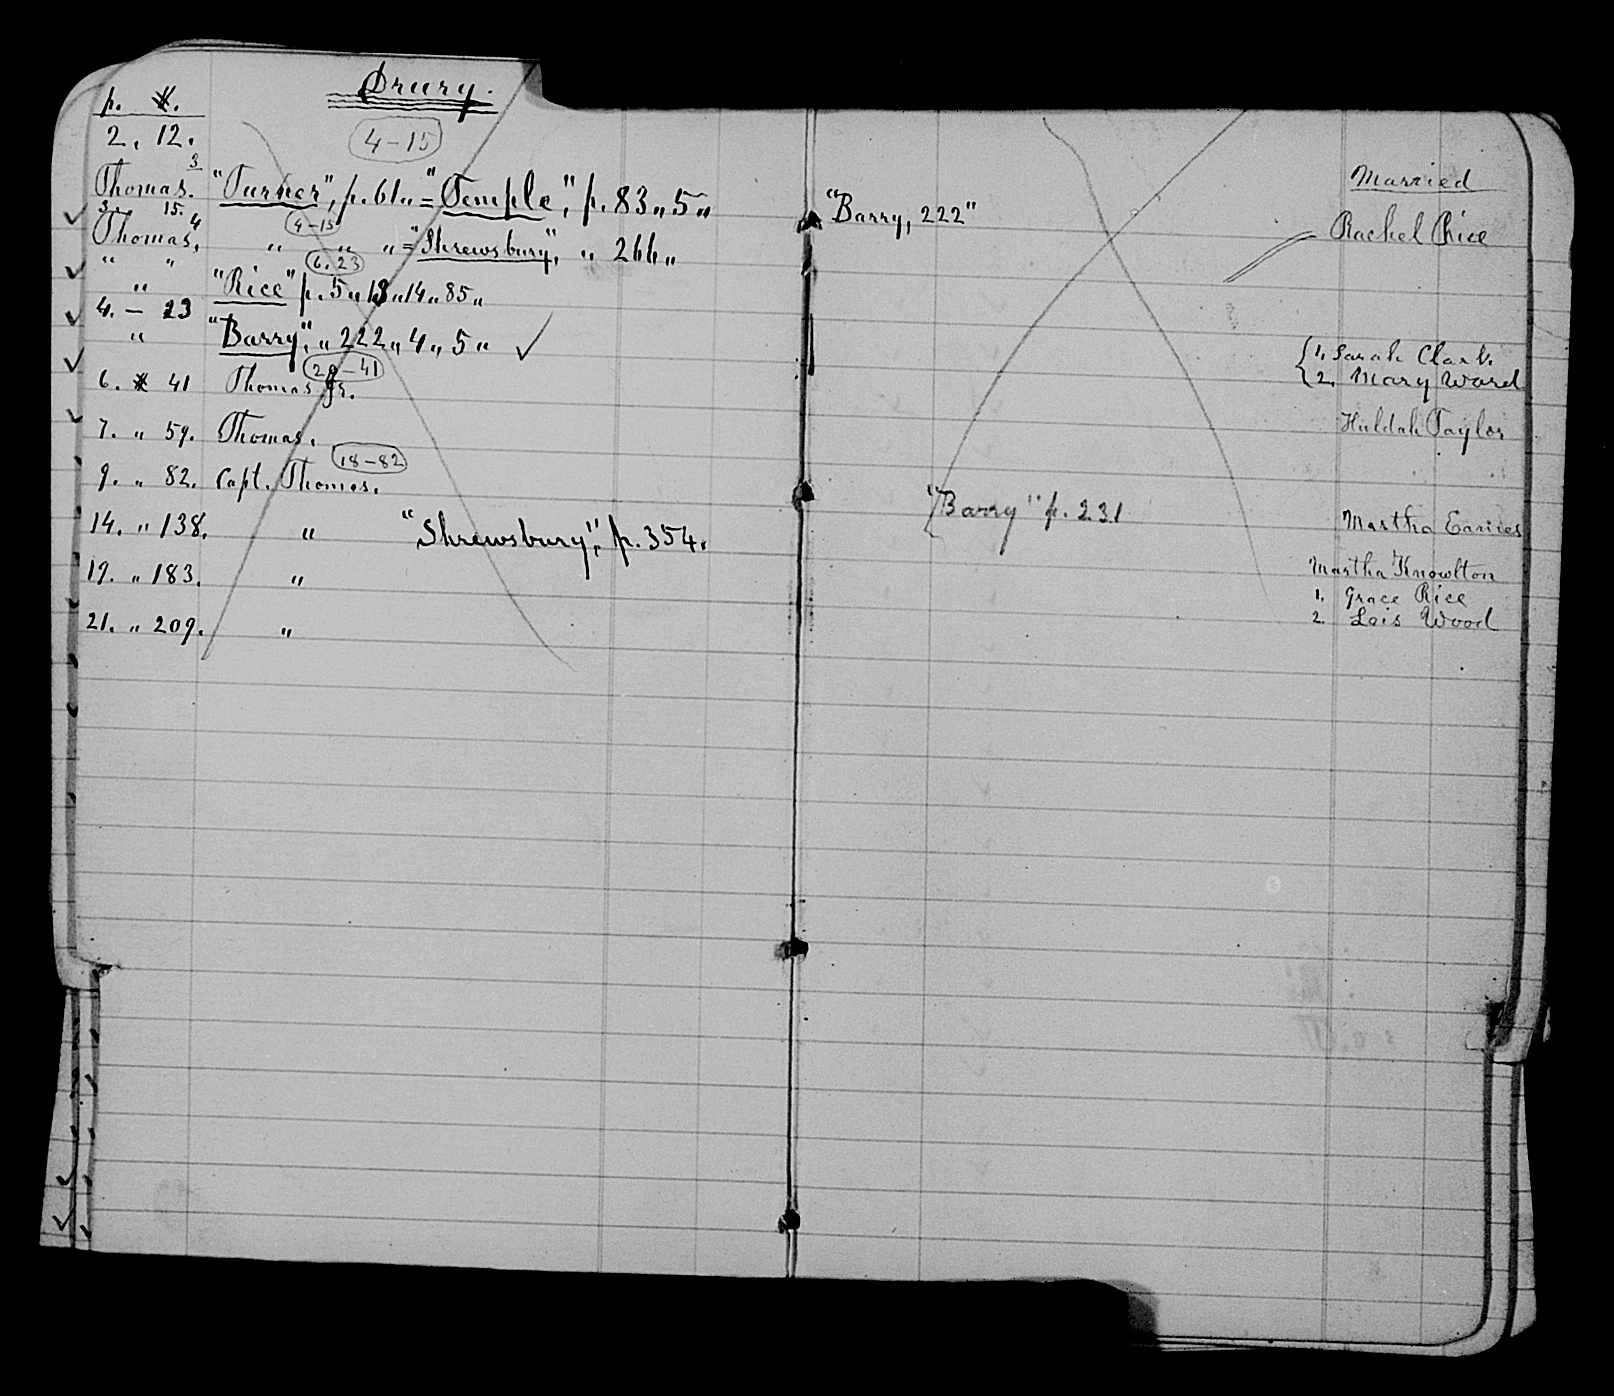 Drury.
p. #.
4-15
2. 12.
3
Thomas. "Turner", p. 61. = "Temple", p. 83 „ 5 „
"Barry, 222"
Married
Rachel Rice
3. 15. 4
4-15
Thomas. „ „ „ = "Shrewsbury", „ 266 „
6.23
" "
„ "Rice" p. 5 „ 13 „ 14 „ 85 „
4. - 23
„ "Barry", „ 222 „ 4 „ 5 „ ✓
1. Sarah Clark.
2. Mary Ward
20-41
6. # 41 Thomas Jr.
7. „ 59. Thomas.
Huldah Taylor
18-82
9. „ 82. Capt. Thomas.
"Barry" p. 231
14. „ 138. „ "Shrewsbury", p. 354.
Martha Eames
19. „ 183. „
Martha Knowlton
1. Grace Rice
21. „ 209. „
2. Lois Wood